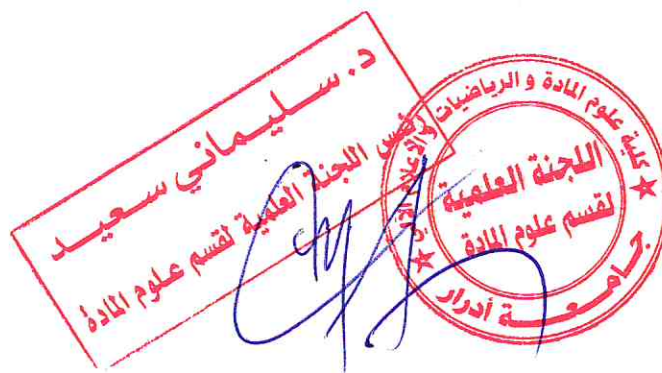 د. سليماني سعيد
رئيس اللجنة العلمية لقسم علوم المادة
كلية علوم المادة و الرياضيات و الإعلام الآلي
اللجنة العلمية
لقسم علوم المادة
جامعة أدرار